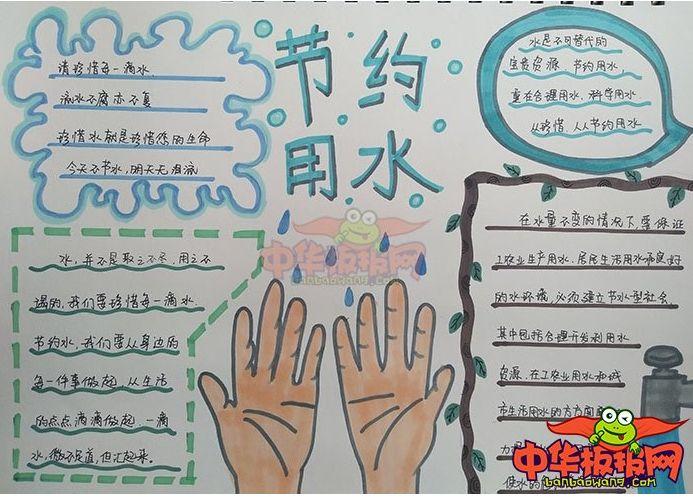 节约
用水
请珍惜每一滴水.
流水不腐亦不复
珍惜水就是珍惜您的生命
今天不节水,明天无泪流
水是不可替代的
宝贵资源 节约用水,
重在合理用水,科学用水
从珍惜.人人节约用水
水,并不是取之不尽,用之不
竭的,我们要珍惜每一滴水.
节约水,我们要从身边的
每一件事做起 从生活
的点点滴滴做起 一滴
水,微不足道,但汇起来.
在水量不变的情况下,要保证
工农业生产用水.居民生活用水和良好
的水环境,必须建立节水型社会
其中包括合理开发利用水
资源.在工农业用水和城
市生活用水的方方面面
力
使水的
中华板报网
banbaowang.com
中华板报网
banbaowang.com